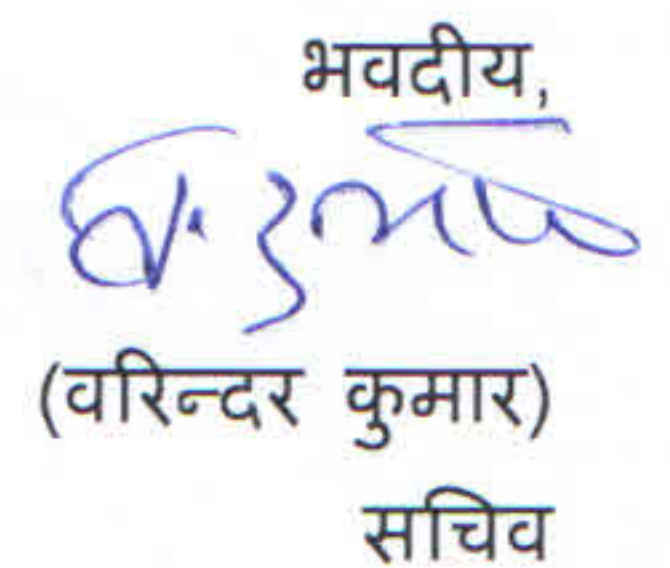 भवदीय,
(वरिन्दर कुमार)
सचिव